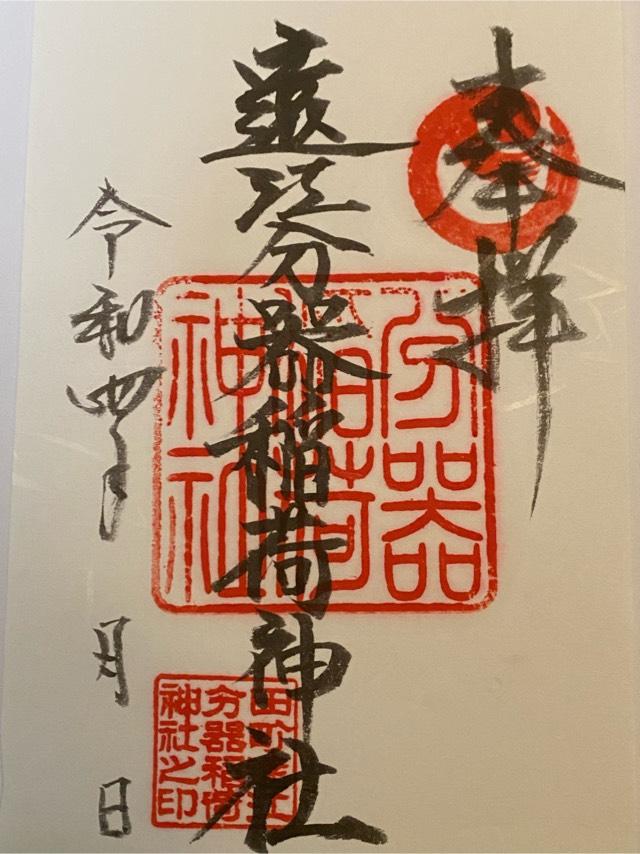 奉拝
遠江分器稲荷神社
令和四年 月 日
分器
稲荷
神社
田町
分器稲荷
神社之印